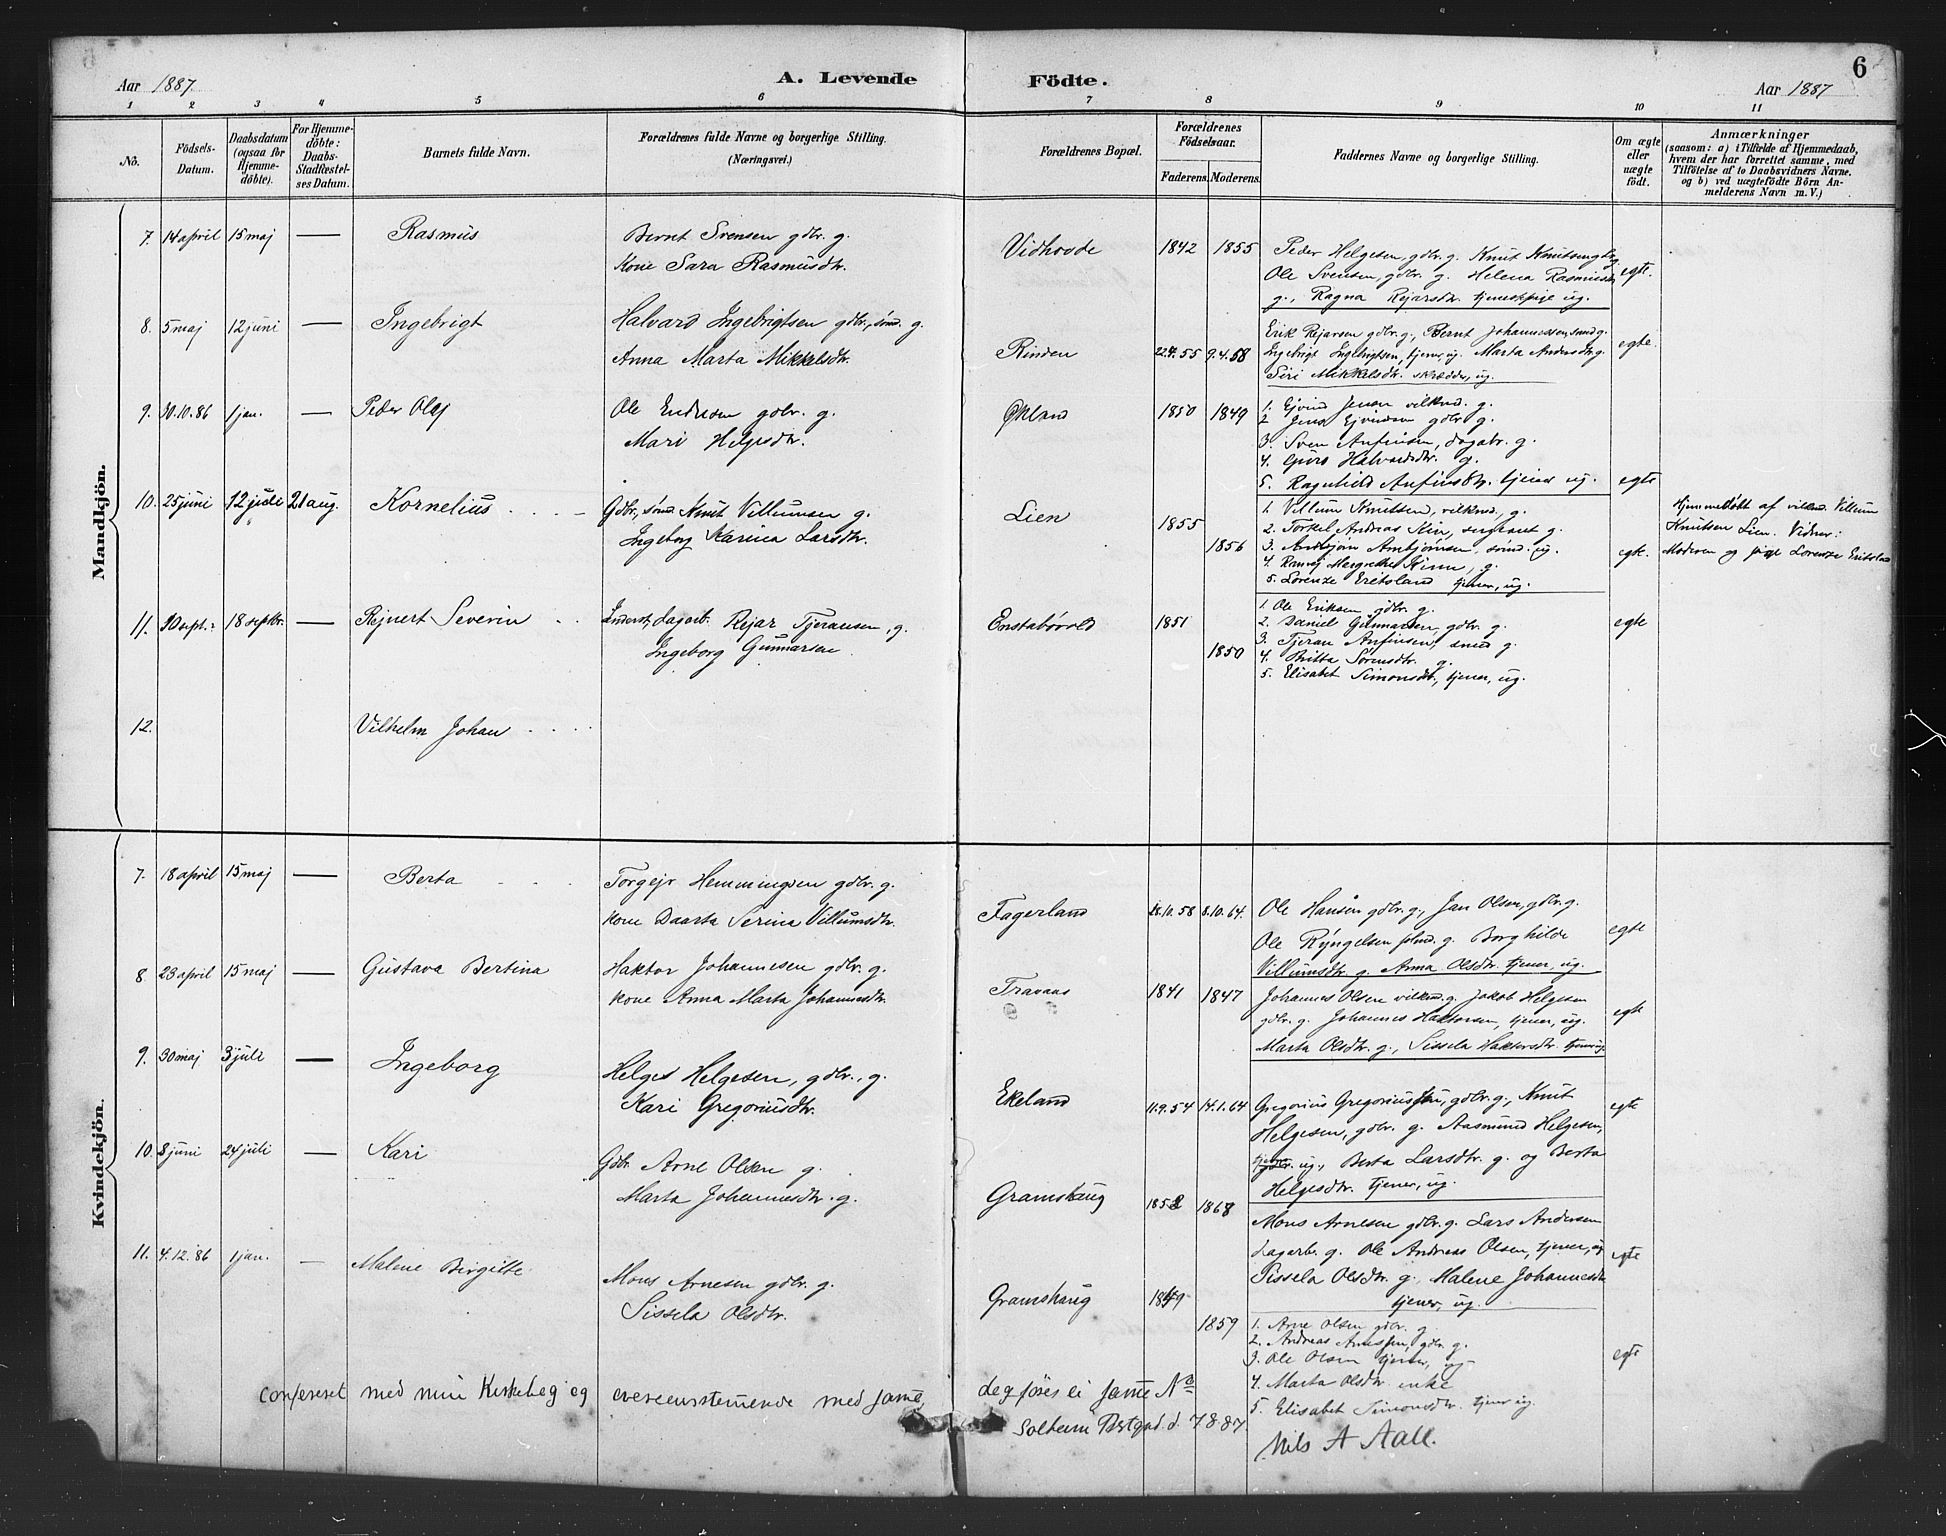 6
Aar 1887
A. Levende Födte.
Aar 1887
1 2 3 4 5 6 7 8 9 10 11
No.
Födsels-Datum.
Daabsdatum (ogsaa for Hjemme-döbte).
For Hjemme-döbte: Daabs-Stadfæstel-ses Datum.
Barnets fulde Navn.
Forældrenes fulde Navne og borgerlige Stilling. (Næringsvei.)
Forældrenes Bopæl.
Forældrenes Födselsaar.
Faderens. Moderens.
Faddernes Navne og borgerlige Stilling.
Om ægte eller uægte födt.
Anmærkninger
(saasom: a) i Tilfælde af Hjemmedaab,
hvem der har forrettet samme, med
Tilföielse af to Daabsvidners Navne.
og b) ved uægtefödte Börn An-
melderens Navn m. V.)
Mandkjön.
7. 14 april 15 maj — Rasmus
Bernt Svensen gdbr. g.
Kone Sara Rasmusdtr.
Vidhovde 1842 1855
Peder Helgesen, gdbr. g. Knut Knutsen gbr. g.
Ole Svensen, gdbr. g. Helena Rasmusdtr.
g., Ragna Rejarsdtr. tjenestpige ug.
egte.
8. 5 maj 12 juni — Ingebrigt
Halvard Ingebrigtsen gdbr., smd. g.
Anna Marta Mikkelsdtr.
Rinden 22.4.55 9.4.58
Erik Rejarsen gdbr. g., Bernt Johannessen, smd g.
Ingebrigt Ingebrigtsen, tjener, ug. Marta Andersdtr. g.
Siri Mikkelsdtr. skrædder, ug.
egte.
9. 30.10.86 1 jan. — Peder Olaj
Ole Endresen gdbr. g.
Mari Helgesdtr.
Økland 1850 1849
1. Ejvind Jensen vilkmd. g.
2 Jens Ejvindsen gdbr. g.
3. Sven Anfinsen, dagabr. g.
4. Guro Halvardsdtr. g.
5. Ragnhild Anfinsdtr. tjener ug.
egte
10. 25 juni 12 juli 21 aug. Kornelius
Gdbr., smd. Knut Villumsen g.
Ingeborg Karina Larsdtr.
Lien 1855 1856
1. Villum Knutsen, vilkmd., g.
2. Torkel Andreas Kin, sergeant g.
3. Ambjørn Ambjørnsen, smd. ug.
4. Ranvej Margrethe Kinn, g.
5. Lorenze Eritsland tjener, ug.
egte.
Hjemmedøbt af vilkmd. Villum
Knutsen Lien. Vidner:
Moderen og pige Lorenze Eritsland
11. 30 sept.: 18 septbr. — Rejnert Severin
Inderst, dagarb. Rejar Tjeransen, g.
Ingeborg Gunnarsen
Enstabøvold 1851 1850
1. Ole Eriksen gdbr. g.
2. Daniel Gunnarsen, gdbr. g.
3. Tjeran Anfinsen, smd g.
4. Britta Sørensdtr. g.
5. Elisabet Simonsdtr., tjener, ug.
egte
12. Vilhelm Johan
Kvindekjön.
7. 18 april 15 maj — Berta
Torgejr Hemmingsen gdbr. g.
kone Daarta Serina Villumsdtr.
Fagerland 28.10.58 8.10.64.
Ole Hansen gdbr. g., Jan Olsen, gdbr. g.
Ole Ryngelsen g. Borghilde
Villumsdtr. g. Anna Olsdtr. tjener, ug.
egte
8 23 april 15 maj — Gustava Bertina
Haktor Johannesen gdbr. g.
kone Anna Marta Johannesdtr.
Travaas 1841 1847
Johannes Olsen vilkmd. g. Jakob Helgesen
gdbr. g. Johannes Haktorsen, tjener, ug.
Marta Olsdtr. g., Sissela Haktorsdtr. tjener ug.
egte
9. 30 maj 3 juli — Ingeborg
Helges Helgesen, gdbr., g.
Kari Gregoriusdtr.
Ekeland 11.9.54 14.1.64
Gregorius Gregoriussen, gdbr. g., Knut
Helgesen, gdbr. g. Aasmund Helgesen,
tjener ug., Berta Larsdtr. g. og Berta
Helgesdtr. tjener, ug.
egte
10. 8 juni 24 juli — Kari
Gdbr. Arne Olsen g.
Marta Johannesdtr. g.
Gramshaug 1852 1868
Mons Arnesen gdbr. g. Lars Andersen
dagarb. g. Ole Andreas Olsen, tjener, ug
Sissela Olsdtr. g., Malene Johannesdtr
tjener, ug.
egte
11. 4.12.86 1 jan. — Malene Birgitte
Mons Arnesen gdbr. g.
Sissela Olsdtr.
Gramshaug 1849 1859
1. Arne Olsen gdbr. g.
2. Andreas Arnessen, gdbr. g.
3. Ole Olsen tjener, ug
4. Marta Olsdtr. enke
5. Elisabet Simonsdtr. tjener ug.
egte
confereret med min Kirkebog og overeensstemende med samme,
Solheim Prstgrd. d. 7 8.87.
Nils A Aall.